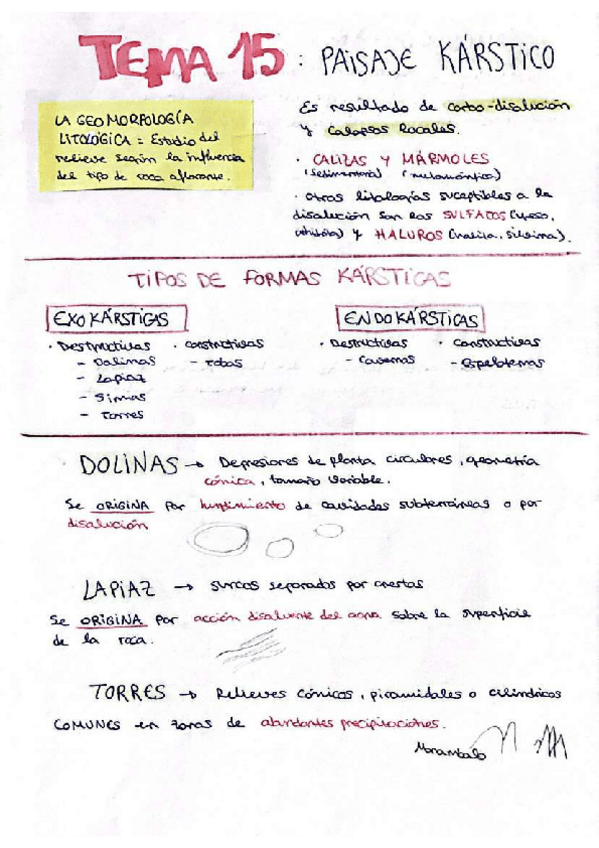 TEMA 15: PAISAJE KÁRSTICO
LA GEOMORFOLOGÍA
LITOLÓGICA = Estudio del
relieve según la influencia
del tipo de roca aflorante.
Es resultado de carbo-disolución
y colapsos locales.
· CALIZAS Y MÁRMOLES
(sedimentaria) (metamórfica)
· otras litologías suceptibles a la
disolución son los SULFATOS (yeso,
anhidrita) y HALUROS (halita, silvina).
TIPOS DE FORMAS KÁRSTICAS
EXOKÁRSTICAS
· Destructivas
- Dolinas
- Lapiaz
- Simas
- Torres
· constructivas
- Tobas
ENDOKÁRSTICAS
· Destructivas
- Cavernas
· constructivas
- Espeleotemas
DOLINAS → Depresiones de planta circulares, geometría
cónica, tamaño variable.
Se ORIGINA por hundimiento de cavidades subterráneas o por
disolución
LAPIAZ → surcos separados por crestas
Se ORIGINA por acción disolvente del agua sobre la superficie
de la roca.
TORRES → Relieves cónicos, piramidales o cilíndricos
COMUNES en zonas de abundantes precipitaciones.